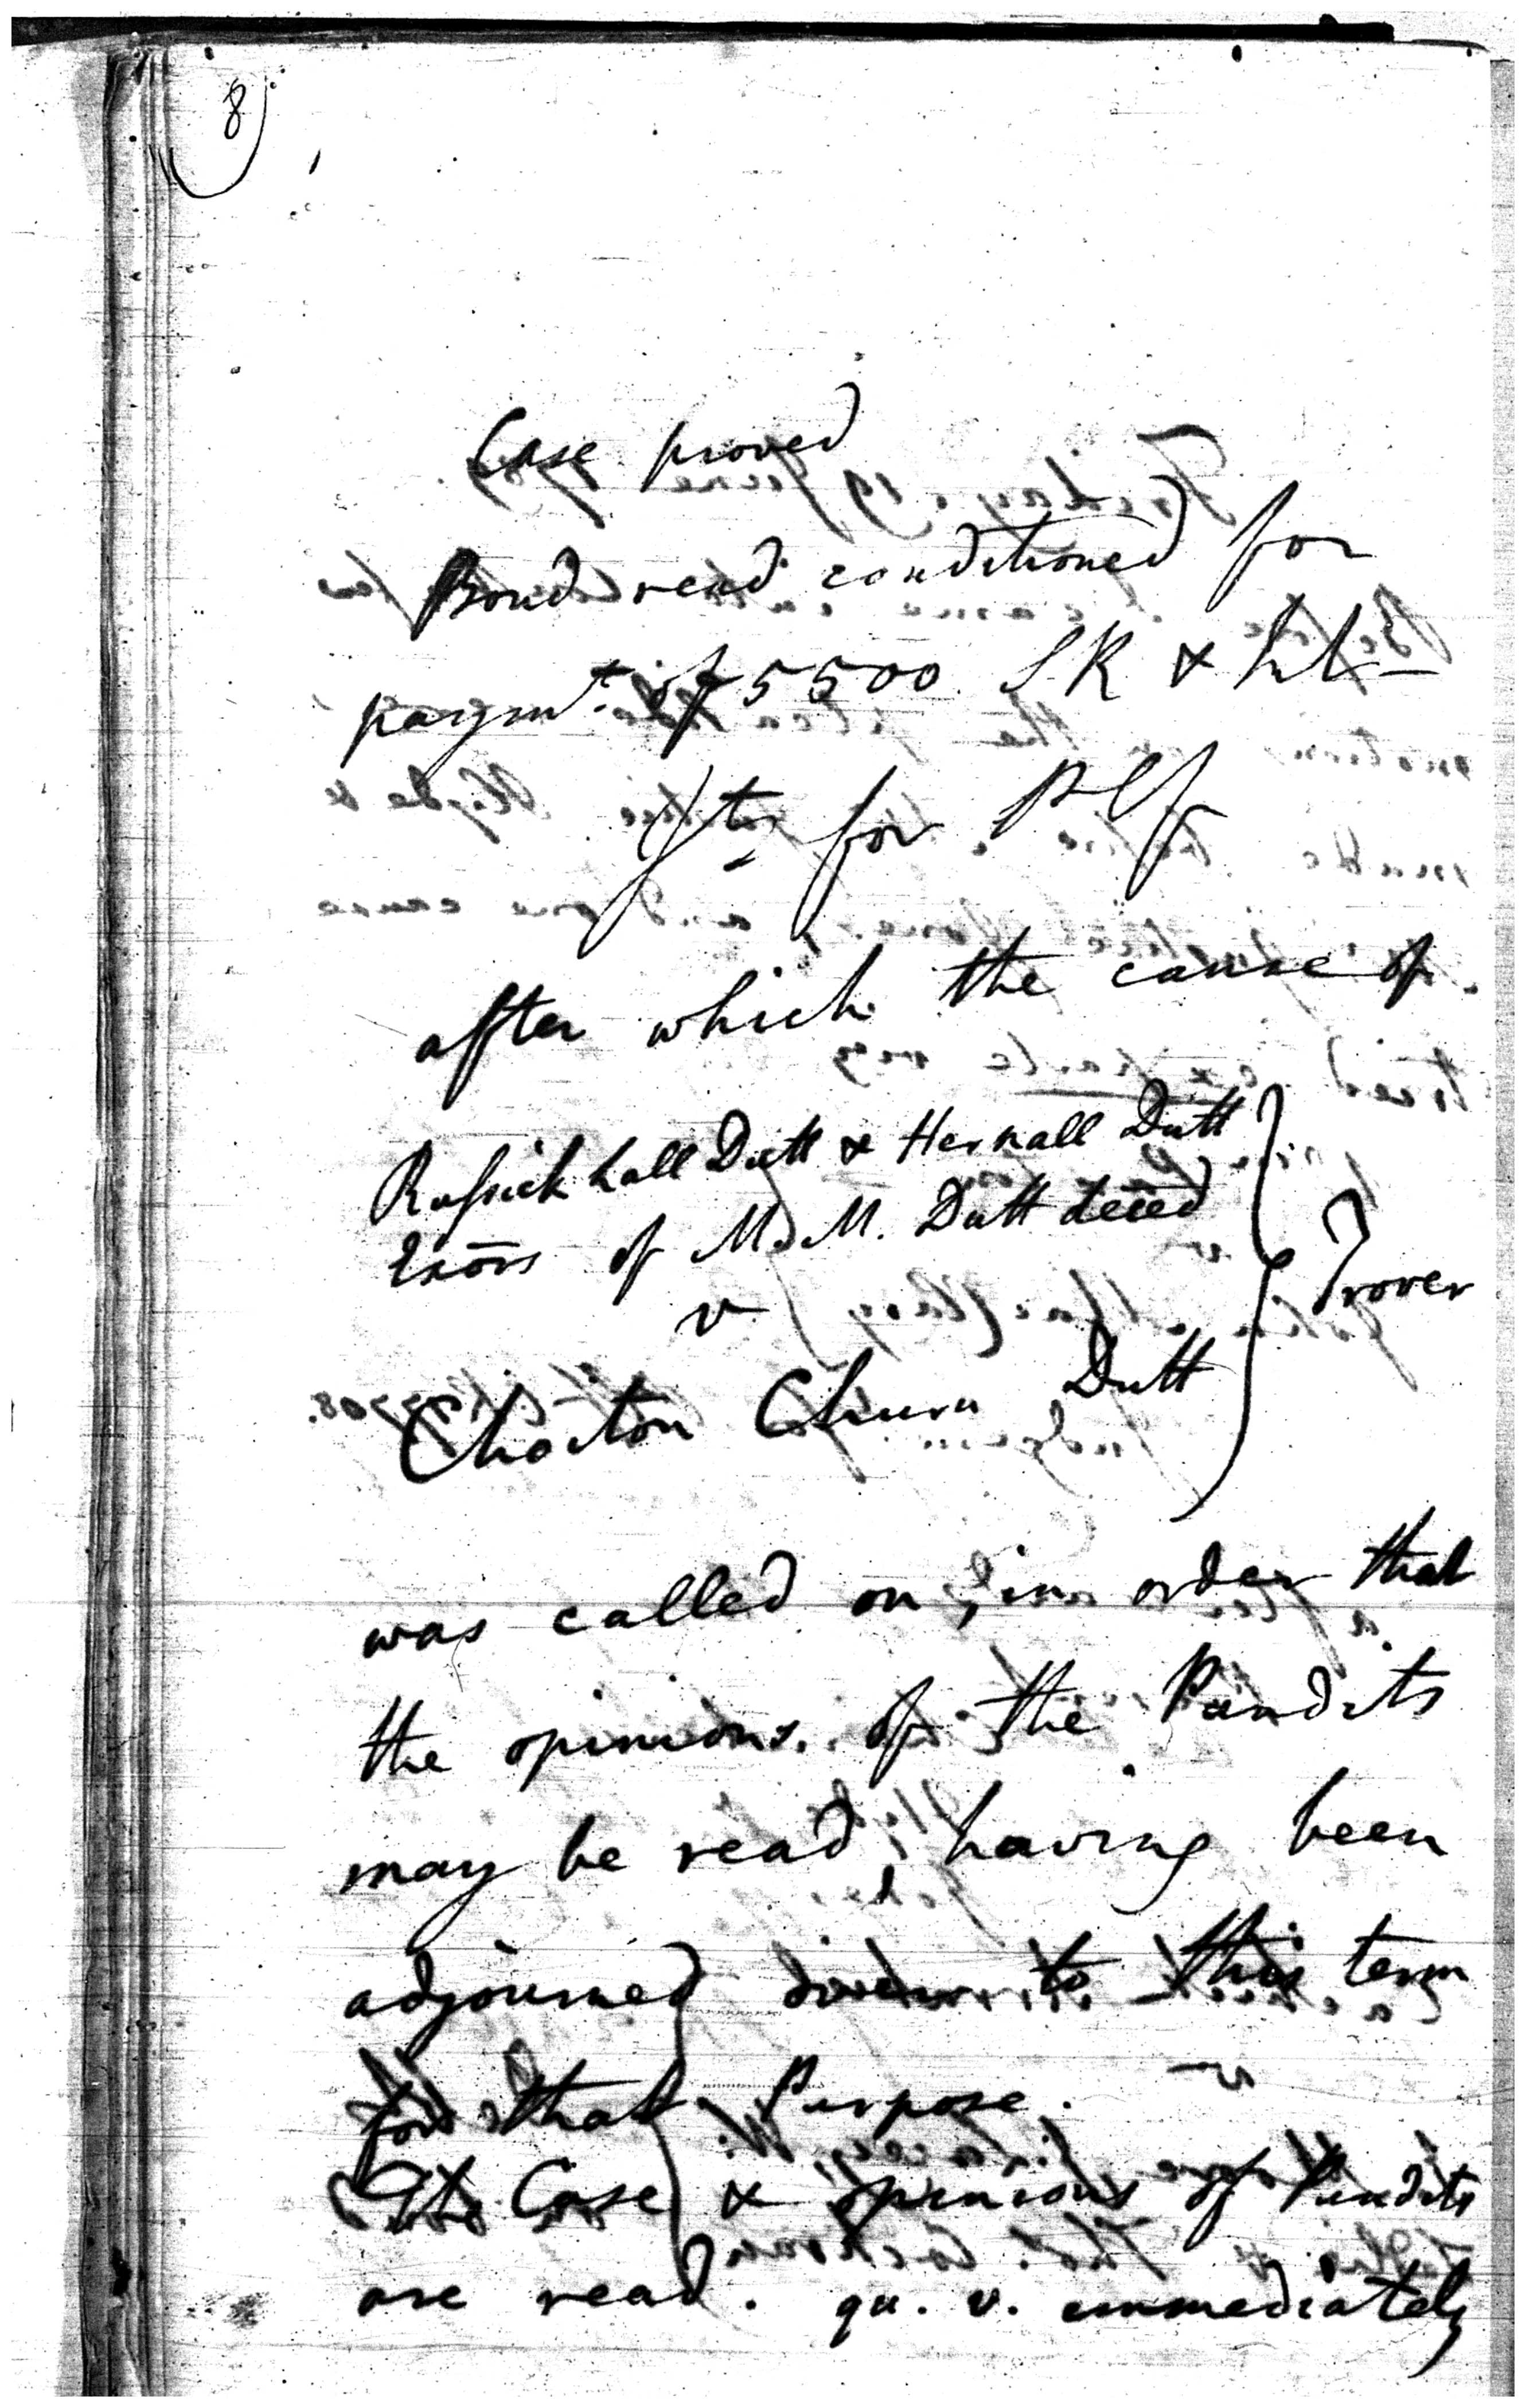 8
Case proved
Bond read conditioned for
paymt. of 5500 S.R &
Jt. for Plf
after which the cause of
Russick Lall Dutt & Hernall Dutt
Exõrs of M. M. Dutt decẽd
v
Trover
Choiton Churn Dutt
was called on, in order that
the opinions of the Pandits
may be read, having been
adjourned down to this term
for that Purpose.
The Case & opinions of Pundits
are read. qu. v. immediately